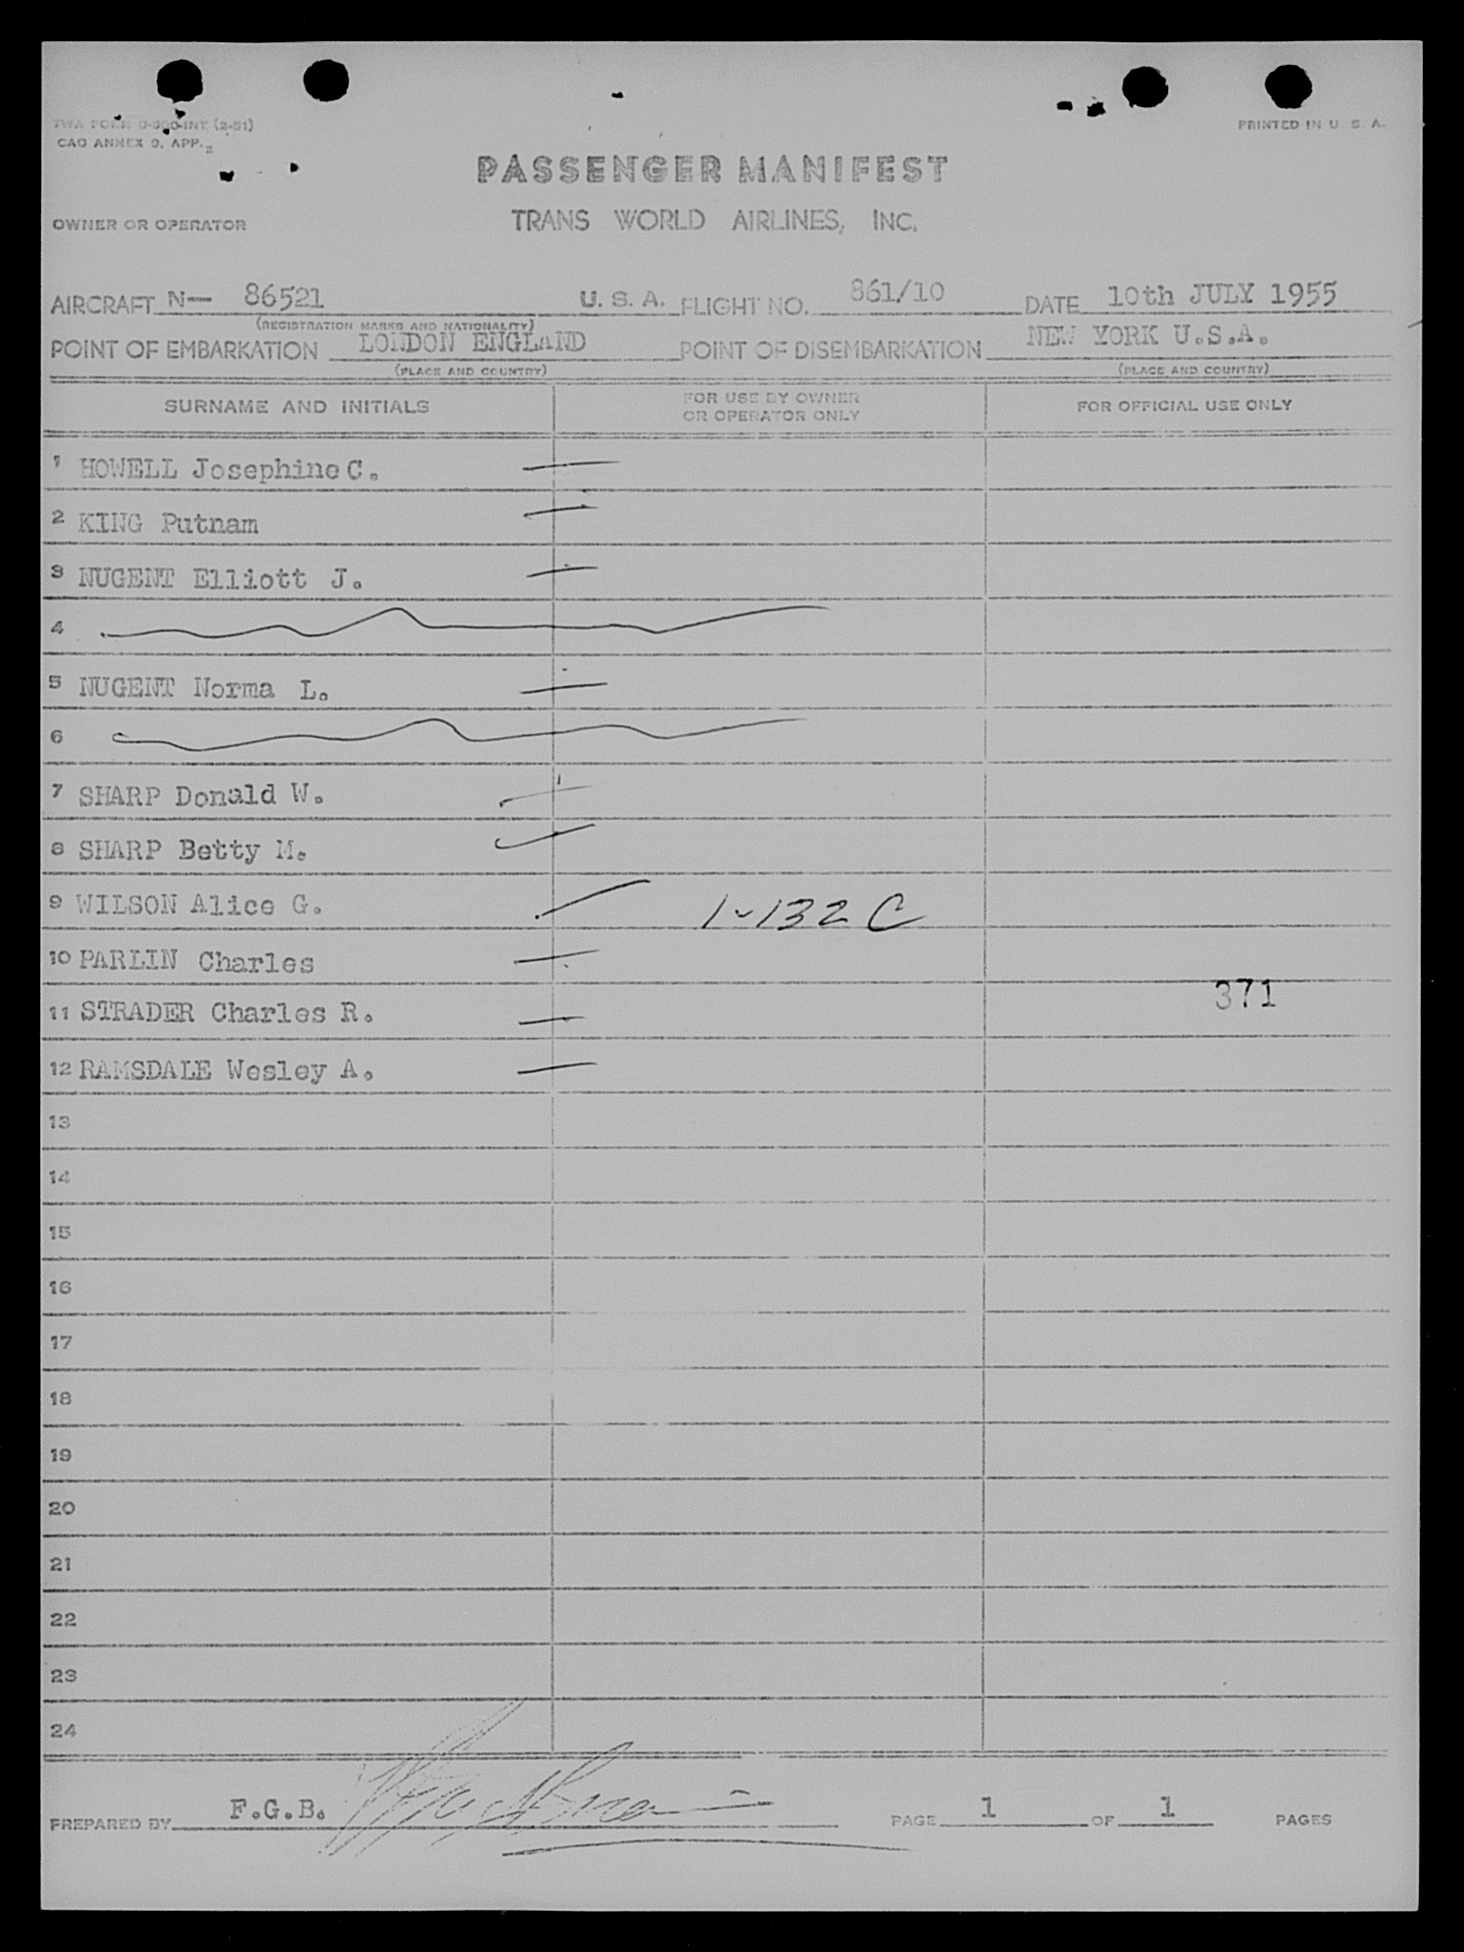 TWA FORM O-300-INT (2-51)
CAO ANNEX 9, APP. 2
PRINTED IN U. S. A.
PASSENGER MANIFEST
OWNER OR OPERATOR TRANS WORLD AIRLINES, INC.
AIRCRAFT N— 86521 U. S. A. FLIGHT NO. 861/10 DATE 10th JULY 1955
(REGISTRATION MARKS AND NATIONALITY)
POINT OF EMBARKATION LONDON ENGLAND POINT OF DISEMBARKATION NEW YORK U.S.A.
(PLACE AND COUNTRY) (PLACE AND COUNTRY)
SURNAME AND INITIALS FOR USE BY OWNER OR OPERATOR ONLY FOR OFFICIAL USE ONLY
1 HOWELL Josephine C.
2 KING Putnam
3 NUGENT Elliott J.
4
5 NUGENT Norma L.
6
7 SHARP Donald W.
8 SHARP Betty M.
9 WILSON Alice G. 1-132 C
10 PARLIN Charles
371
11 STRADER Charles R.
12 RAMSDALE Wesley A.
13
14
15
16
17
18
19
20
21
22
23
24
PREPARED BY F.G.B. PAGE 1 OF 1 PAGES